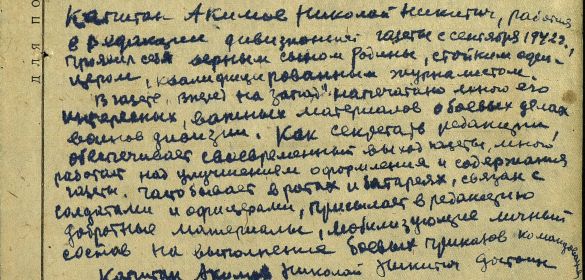 Капитан Акимов Николай Никитич, работая
в редакции дивизионной газеты с сентября 1942 г.,
проявил себя верным сыном родины, стойким офи-
цером, квалифицированным журналистом.
В газете „Вперед на запад" напечатано много его
интересных, важных материалов о боевых делах
воинов дивизии. Как секретарь редакции,
обеспечивает своевременный выход газеты, много
работает над улучшением оформления и содержания
газеты. Часто бывает в ротах и батареях, связан с
солдатами и офицерами, присылает в редакцию
добротные материалы, мобилизующие личный
состав на выполнение боевых приказов
Капитан Акимов Николай Никитич достоин
ДЛЯ ПО